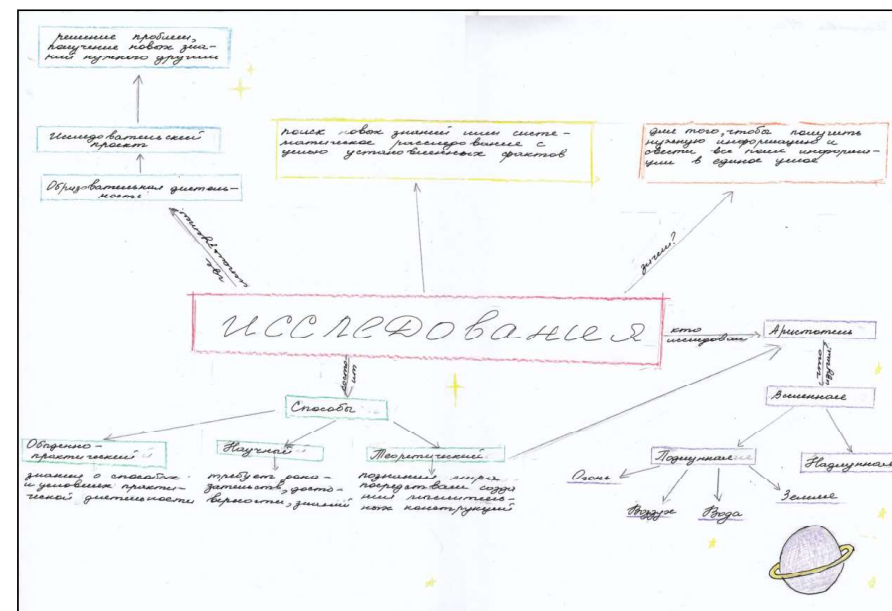 решение проблем,
получение новых зна-
ний нужного другим
Исследовательский
проект
Образовательная деятель-
ность
поиск новых знаний или систе-
матическое расследование с
целью установленных фактов
для того, чтобы получить
нужную информацию и
свести все поли информа-
ции в единое целое
где
используют?
зачем?
исследования
кто
исследовал
Аристотель
что
увидел?
Вселенная
состо
ит
Способы
Обыденно-
практический
знания о способах
и условиях практи-
ческой деятельности
Научный
требует дока-
зательств, досто-
верности, знаний
Теоретический
познания мира
посредствам созда
ния мысленных конструкций
Подлунная
Надлунная
Огонь
Воздух
Вода
Земля